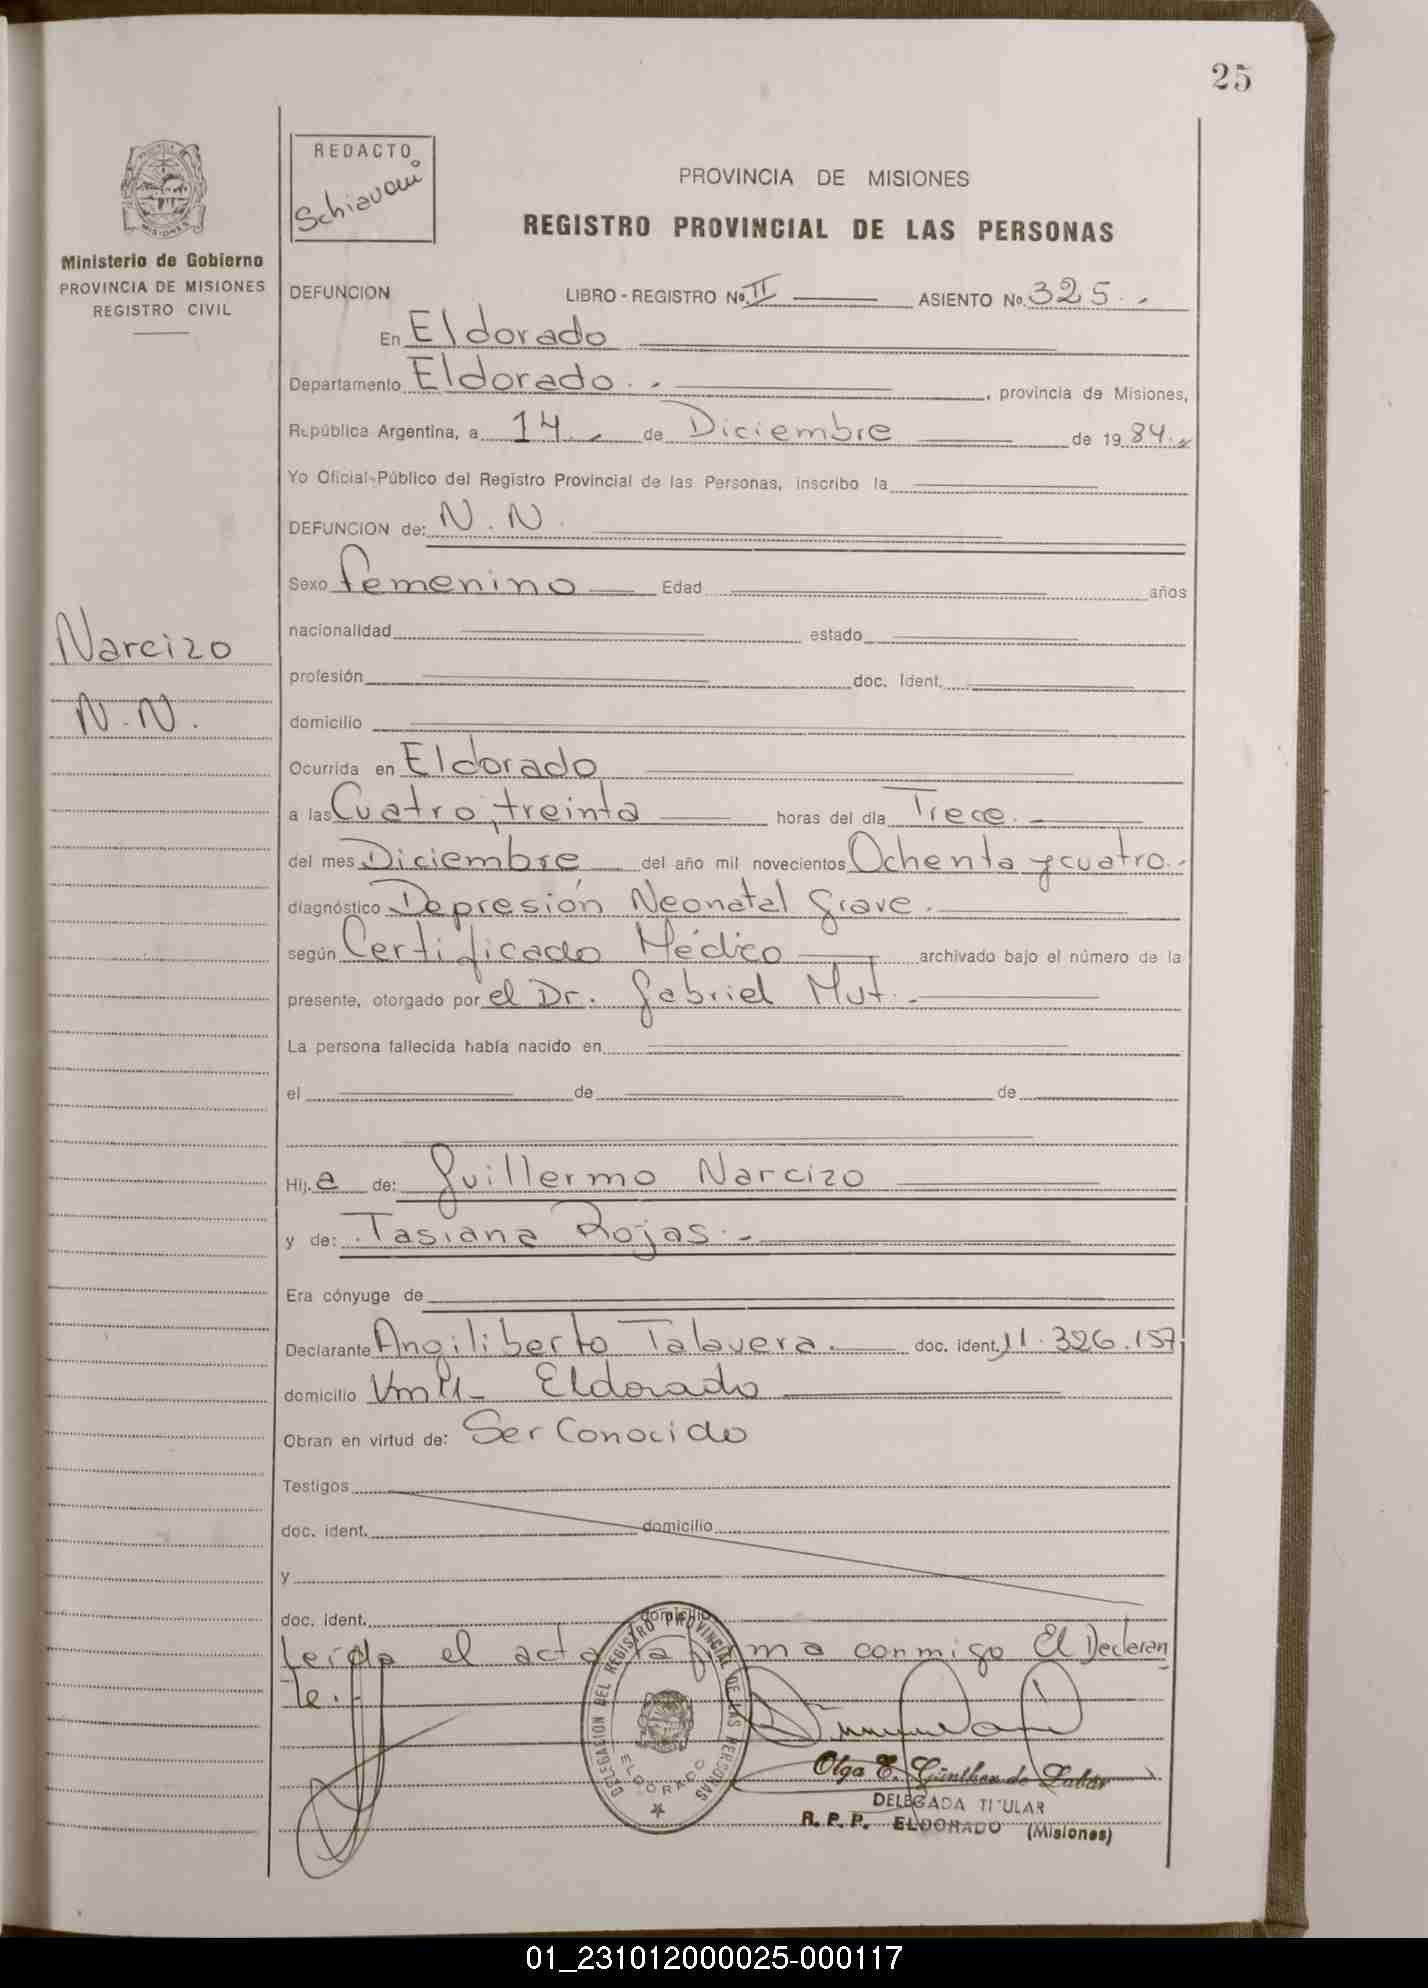 25
REDACTO
Schiavoni
PROVINCIA DE MISIONES
REGISTRO PROVINCIAL DE LAS PERSONAS
Ministerio de Gobierno
PROVINCIA DE MISIONES
REGISTRO CIVIL
DEFUNCION LIBRO - REGISTRO No. II ASIENTO No. 325.-
En Eldorado
Departamento Eldorado.- , provincia de Misiones,
República Argentina, a 14.- de Diciembre de 1984.-
Yo Oficial Público del Registro Provincial de las Personas, inscribo la
DEFUNCION de: N.N.
Sexo femenino Edad años
nacionalidad estado
Narcizo
N.N.
profesión doc. Ident.
domicilio
Ocurrida en Eldorado
a las Cuatro, treinta horas del día Trece.
del mes Diciembre del año mil novecientos Ochenta y cuatro.-
diagnóstico Depresión Neonatal Grave.
según Certificado Médico archivado bajo el número de la
presente, otorgado por el Dr. Gabriel Mut.-
La persona fallecida había nacido en
el de de
Hij a de: Guillermo Narcizo
y de: Tasiana Rojas.-
Era cónyuge de
Declarante Angiliberto Talavera.- doc. ident. 11.326.157
domicilio Eldorado
Obran en virtud de: Ser Conocido
Testigos
doc. ident. domicilio
y
doc. ident. domicilio
Leída el acta la firma conmigo El Declaran
te.-
DELEGACION DEL REGISTRO PROVINCIAL DE LAS PERSONAS
ELDORADO
Olga E. Günther de Labar
DELEGADA TITULAR
R. P. P. ELDORADO (Misiones)
01_231012000025-000117